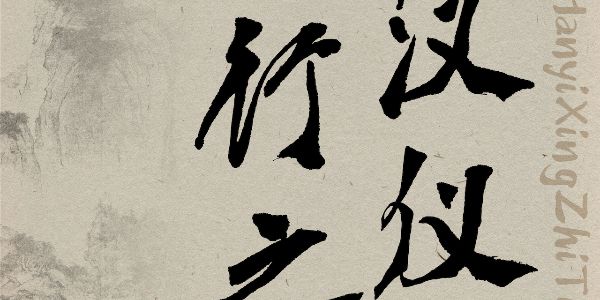 汉仪
行之
HanyiXingZhiT